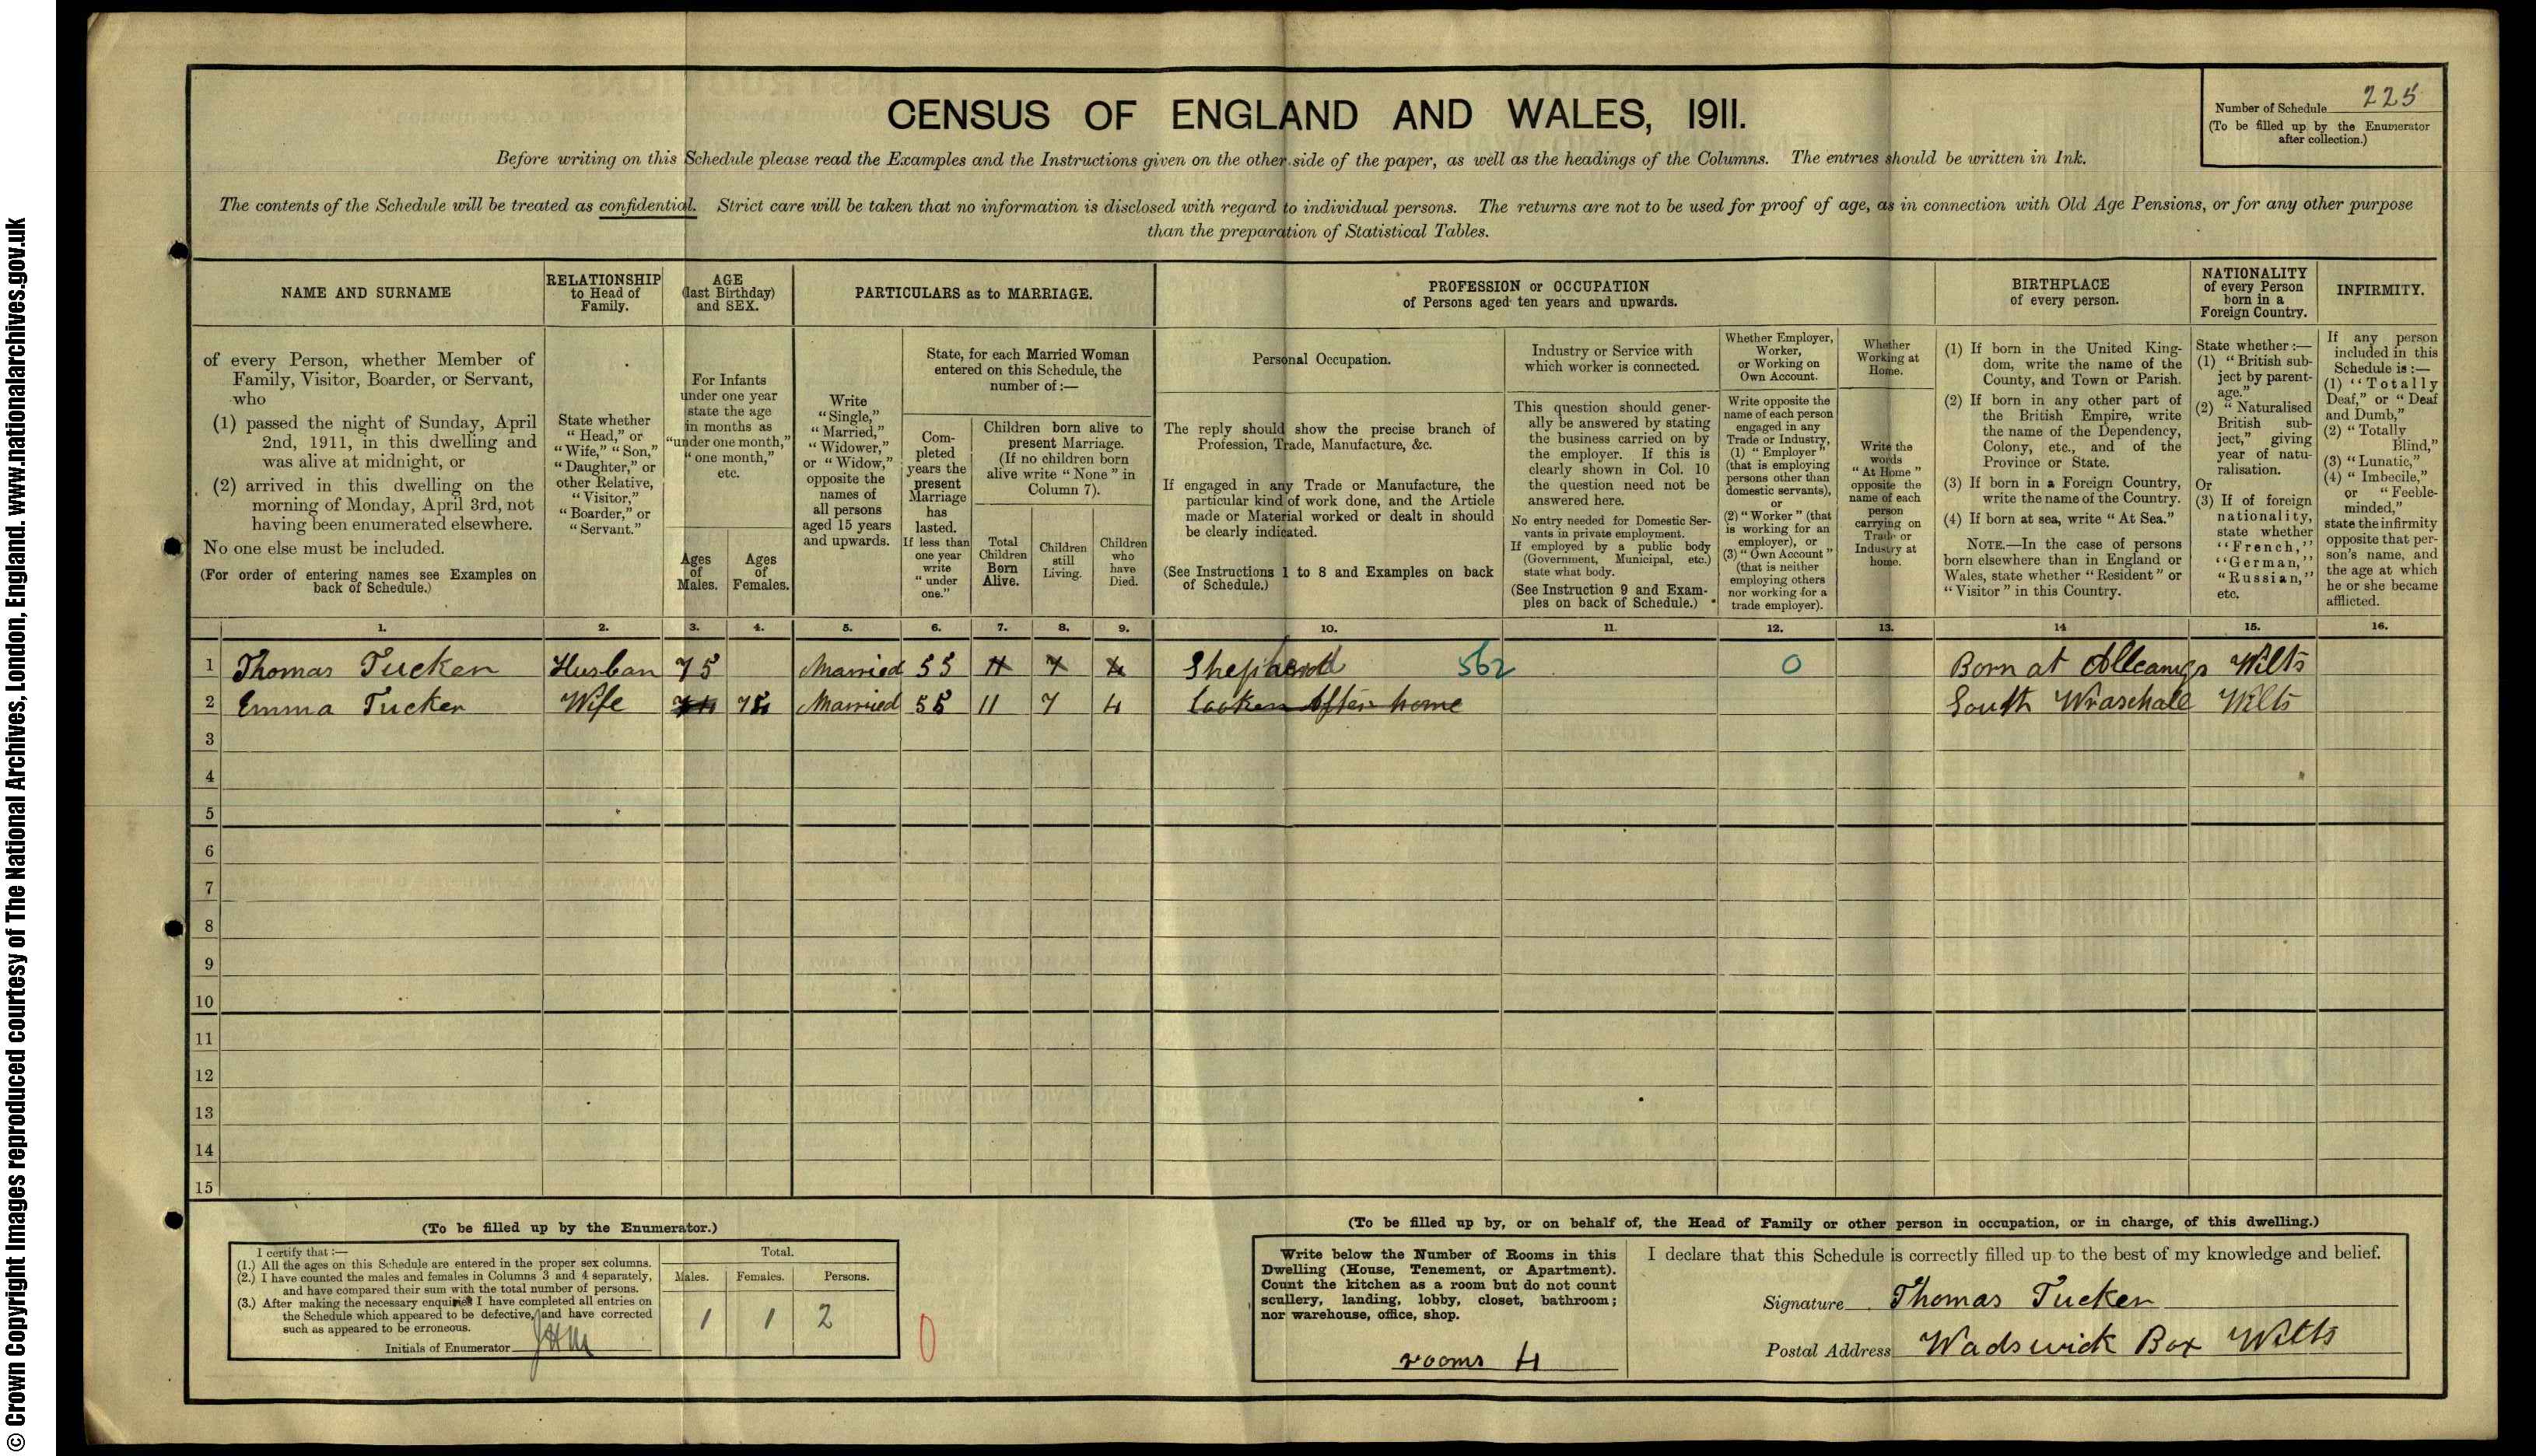 © Crown Copyright Images reproduced courtesy of The National Archives, London, England. www.nationalarchives.gov.uk
CENSUS OF ENGLAND AND WALES, 1911.
Number of Schedule 225
(To be filled up by the Enumerator
after collection.)
Before writing on this Schedule please read the Examples and the Instructions given on the other side of the paper, as well as the headings of the Columns. The entries should be written in Ink.
The contents of the Schedule will be treated as confidential. Strict care will be taken that no information is disclosed with regard to individual persons. The returns are not to be used for proof of age, as in connection with Old Age Pensions, or for any other purpose
than the preparation of Statistical Tables.
NAME AND SURNAME
of every Person, whether Member of
Family, Visitor, Boarder, or Servant,
who
(1) passed the night of Sunday, April
2nd, 1911, in this dwelling and
was alive at midnight, or
(2) arrived in this dwelling on the
morning of Monday, April 3rd, not
having been enumerated elsewhere.
No one else must be included.
(For order of entering names see Examples on
back of Schedule.)
RELATIONSHIP
to Head of
Family.
State whether
"Head," or
"Wife," "Son,"
"Daughter," or
other Relative,
"Visitor,"
"Boarder," or
"Servant."
AGE
(last Birthday)
and SEX.
For Infants
under one year
state the age
in months as
"under one month,"
"one month,"
etc.
Ages
of
Males.
Ages
of
Females.
PARTICULARS as to MARRIAGE.
Write
"Single,"
"Married,"
"Widower,"
or "Widow,"
opposite the
names of
all persons
aged 15 years
and upwards.
State, for each Married Woman
entered on this Schedule, the
number of:—
Com-
pleted
years the
present
Marriage
has
lasted.
If less than
one year
write
"under
one."
Children born alive to
present Marriage.
(If no children born
alive write "None" in
Column 7).
Total
Children
Born
Alive.
Children
still
Living.
Children
who
have
Died.
PROFESSION or OCCUPATION
of Persons aged ten years and upwards.
Personal Occupation.
The reply should show the precise branch of
Profession, Trade, Manufacture, &c.
If engaged in any Trade or Manufacture, the
particular kind of work done, and the Article
made or Material worked or dealt in should
be clearly indicated.
(See Instructions 1 to 8 and Examples on back
of Schedule.)
Industry or Service with
which worker is connected.
This question should gener-
ally be answered by stating
the business carried on by
the employer. If this is
clearly shown in Col. 10
the question need not be
answered here.
No entry needed for Domestic Ser-
vants in private employment.
If employed by a public body
(Government, Municipal, etc.)
state what body.
(See Instruction 9 and Exam-
ples on back of Schedule.)
Whether Employer,
Worker,
or Working on
Own Account.
Write opposite the
name of each person
engaged in any
Trade or Industry,
(1) "Employer"
(that is employing
persons other than
domestic servants),
or
(2) "Worker" (that
is working for an
employer), or
(3) "Own Account"
(that is neither
employing others
nor working for a
trade employer).
Whether
Working at
Home.
Write the
words
"At Home"
opposite the
name of each
person
carrying on
Trade or
Industry at
home.
BIRTHPLACE
of every person.
(1) If born in the United King-
dom, write the name of the
County, and Town or Parish.
(2) If born in any other part of
the British Empire, write
the name of the Dependency,
Colony, etc., and of the
Province or State.
(3) If born in a Foreign Country,
write the name of the Country.
(4) If born at sea, write "At Sea."
NOTE.—In the case of persons
born elsewhere than in England or
Wales, state whether "Resident" or
"Visitor" in this Country.
NATIONALITY
of every Person
born in a
Foreign Country.
State whether:—
(1) "British sub-
ject by parent-
age."
(2) "Naturalised
British sub-
ject," giving
year of natu-
ralisation.
Or
(3) If of foreign
nationality,
state whether
"French,"
"German,"
"Russian,"
etc.
INFIRMITY.
If any person
included in this
Schedule is:—
(1) "Totally
Deaf," or "Deaf
and Dumb,"
(2) "Totally
Blind,"
(3) "Lunatic,"
(4) "Imbecile,"
or "Feeble-
minded,"
state the infirmity
opposite that per-
son's name, and
the age at which
he or she became
afflicted.
1. 2. 3. 4. 5. 6. 7. 8. 9. 10. 11. 12. 13. 14 15. 16.
1 Thomas Tucker Husban 75 Married 55 11 7 4 Shepherd 562 0 Born at Allcanigs Wilts
2 Emma Tucker Wife 74 Married 55 11 7 4 Looker After home South Wraschall Wilts
3
4
5
6
7
8
9
10
11
12
13
14
15
(To be filled up by the Enumerator.)
I certify that:—
(1.) All the ages on this Schedule are entered in the proper sex columns.
(2.) I have counted the males and females in Columns 3 and 4 separately,
and have compared their sum with the total number of persons.
(3.) After making the necessary enquiries I have completed all entries on
the Schedule which appeared to be defective, and have corrected
such as appeared to be erroneous.
Initials of Enumerator
Total.
Males. Females. Persons.
1 1 2
0
(To be filled up by, or on behalf of, the Head of Family or other person in occupation, or in charge, of this dwelling.)
Write below the Number of Rooms in this
Dwelling (House, Tenement, or Apartment).
Count the kitchen as a room but do not count
scullery, landing, lobby, closet, bathroom;
nor warehouse, office, shop.
rooms 4
I declare that this Schedule is correctly filled up to the best of my knowledge and belief.
Signature Thomas Tucker
Postal Address Wadswick Box Wilts